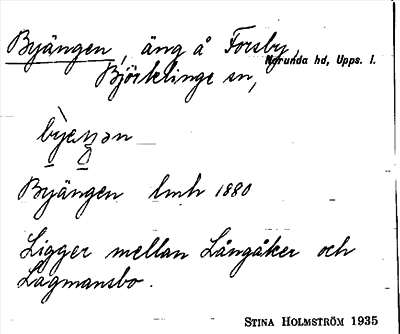 Byängen, äng å Forsby,
Norunda hd, Upps. l.
Björklinge sn,
Byängen lmh 1880
Ligger mellan Långåker och
Lagmansbo.
STINA HOLMSTRÖM 1935